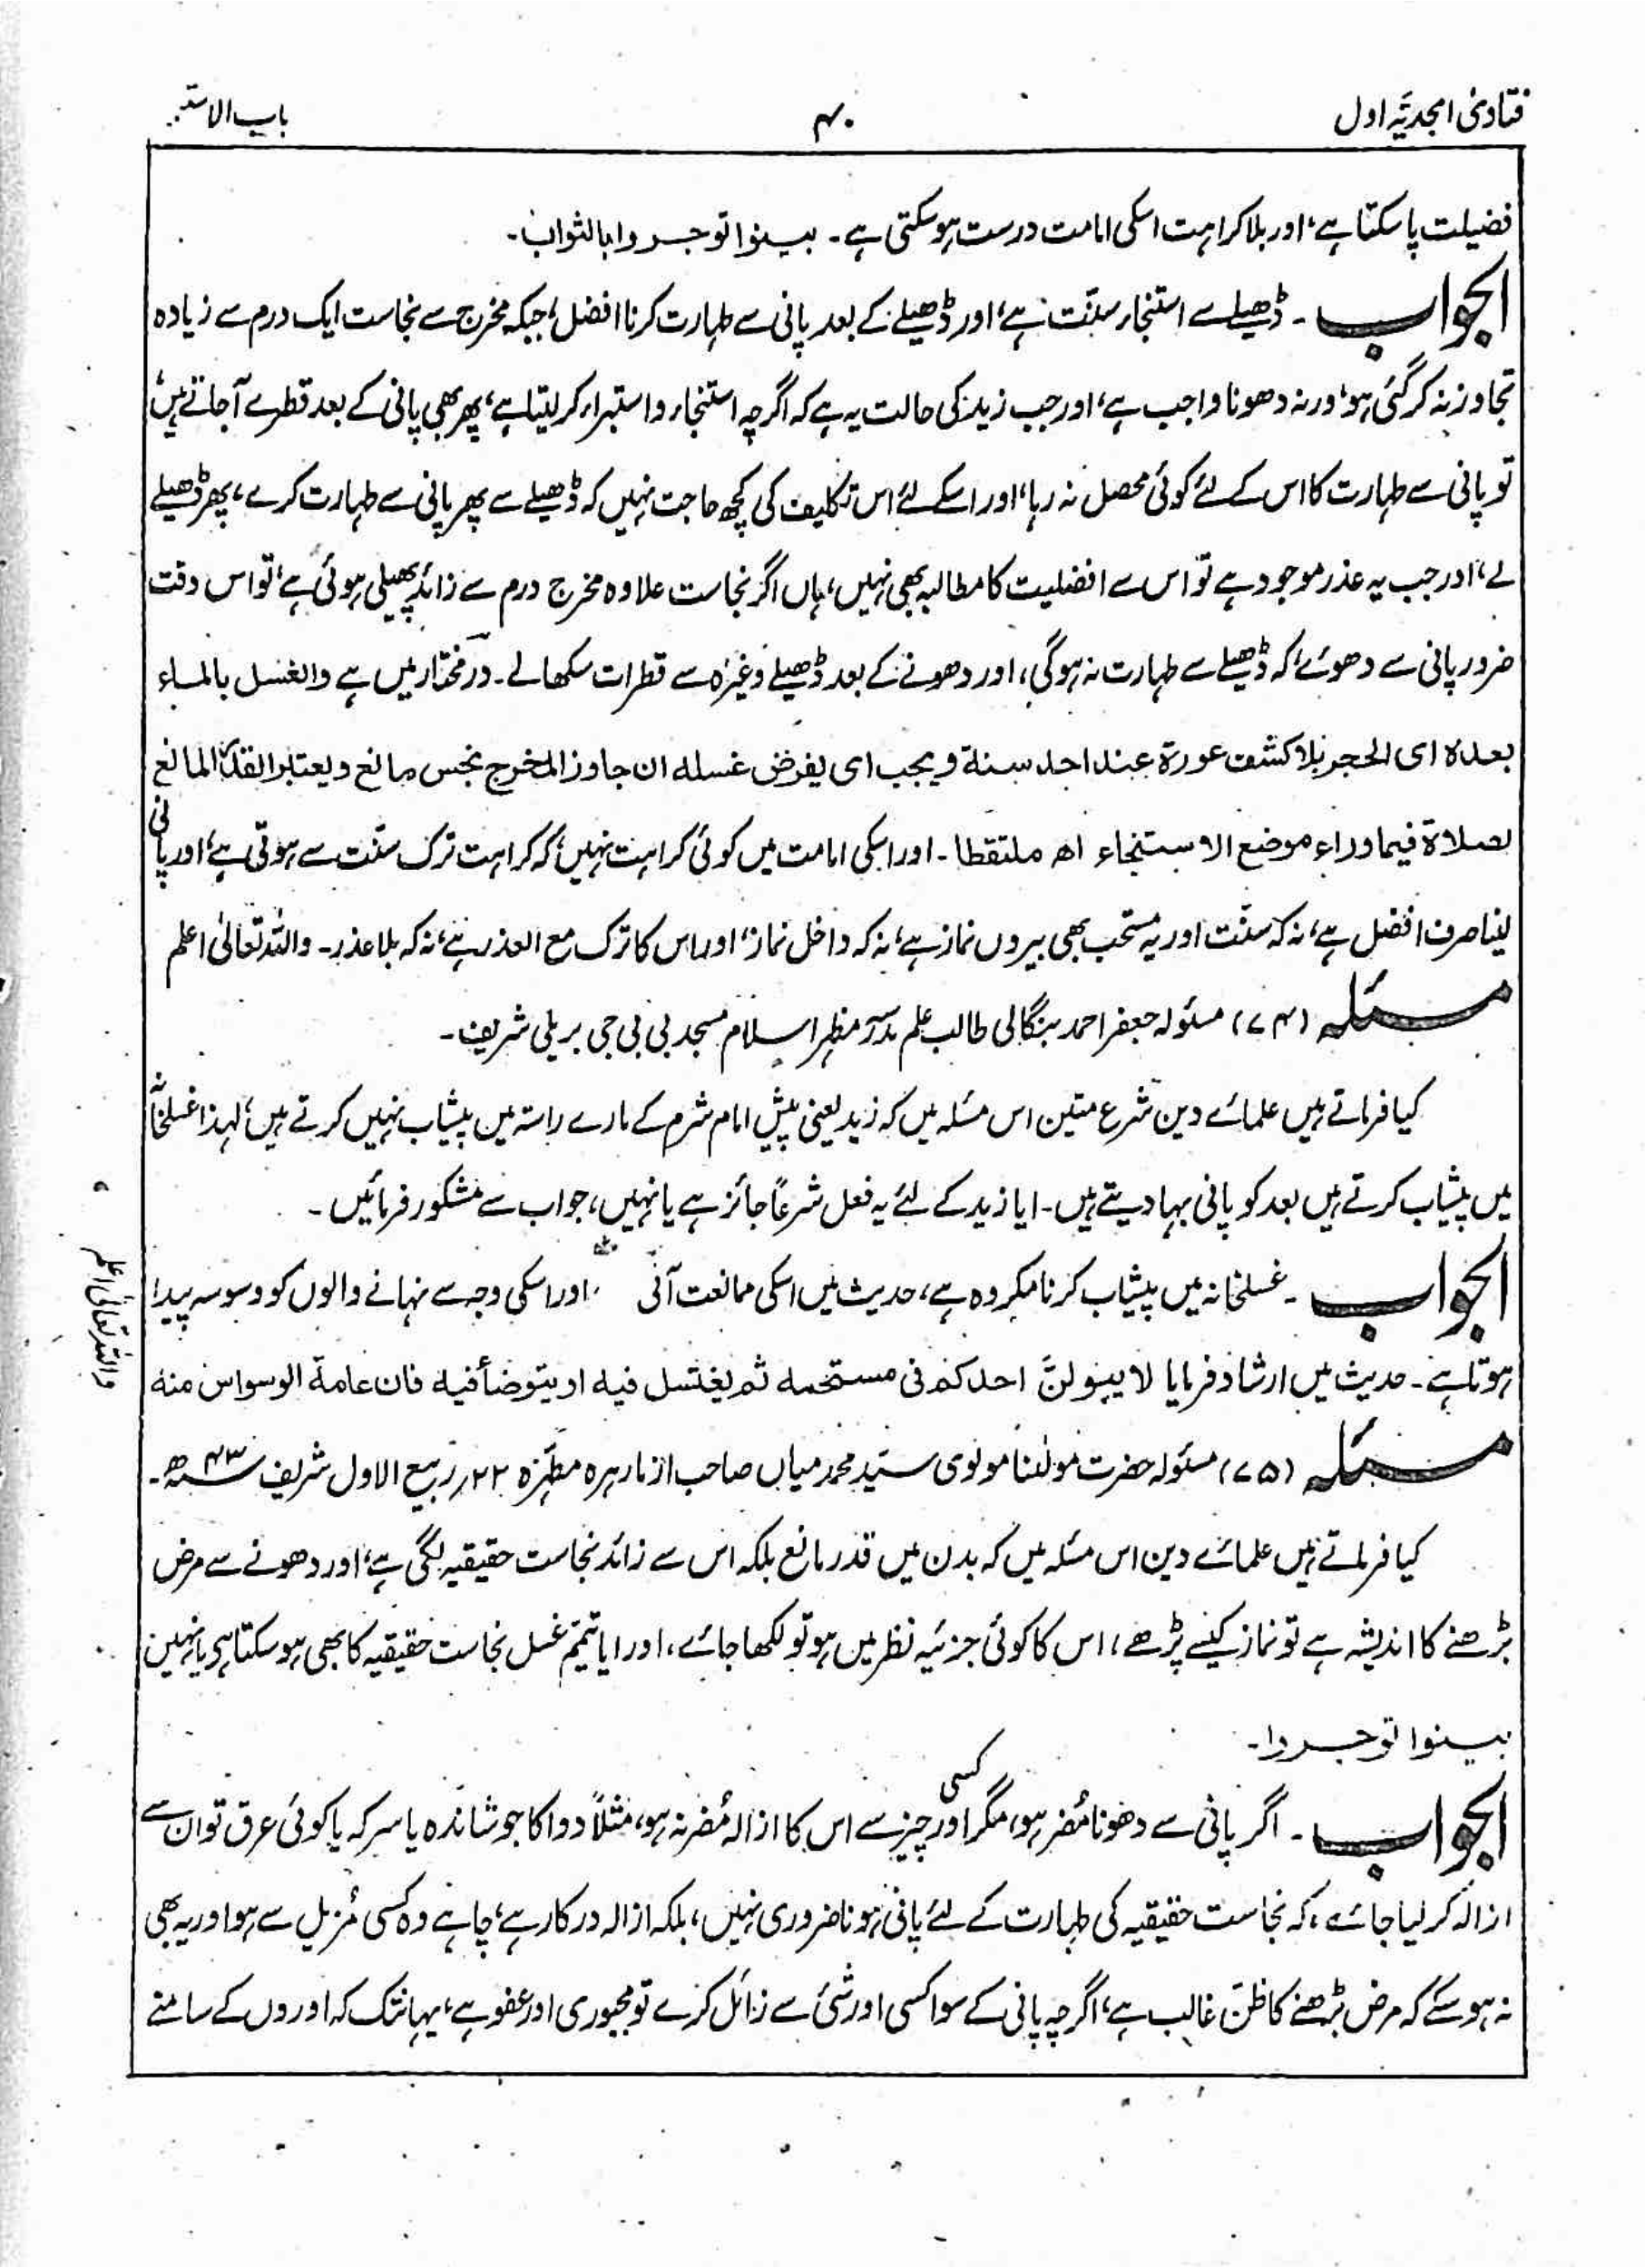 فتاویٰ امجدیہ اول
۴۰
باب الاستن
فضیلت پا سکتا ہے، اور بلا کراہت اسکی امامت درست ہو سکتی ہے۔ بینوا توجروا بالثواب۔
الجواب۔ ڈھیلے سے استنجاء سنّت ہے، اور ڈھیلے کے بعد پانی سے طہارت کرنا افضل، جبکہ مخرج سے نجاست ایک درم سے زیادہ
تجاوز نہ کر گئی ہو، ورنہ دھونا واجب ہے، اور جب زید کی حالت یہ ہے کہ اگرچہ استنجاء و استبراء کر لیتا ہے، پھر بھی پانی کے بعد قطرے آجاتے ہیں،
تو پانی سے طہارت کا اس کے لئے کوئی محصل نہ رہا، اور اسکے لئے اس تکلیف کی کچھ حاجت نہیں کہ ڈھیلے سے پھر پانی سے طہارت کرے، پھر ڈھیلے
لے، اور جب یہ عذر موجود ہے تو اس سے افضلیت کا مطالبہ بھی نہیں، ہاں اگر نجاست علاوہ مخرج درم سے زائد پھیلی ہوئی ہے، تو اس وقت
ضرور پانی سے دھوئے، کہ ڈھیلے سے طہارت نہ ہوگی، اور دھونے کے بعد ڈھیلے وغیرہ سے قطرات سکھالے۔ درمختار میں ہے والغسل بالماء
بعدہ ای الحجر بلا کشف عورۃ عند احد سنۃ ویجب ای یفرض غسلہ ان جاوز المخرج نجس مانع ویعتبر القدر المانع
لصلاۃ فیما وراء موضع الاستنجاء اھ ملتقطا۔ اور اسکی امامت میں کوئی کراہت نہیں، کہ کراہت ترک سنّت سے ہوتی ہے، اور پانی
لینا صرف افضل ہے، نہ کہ سنّت اور یہ مستحب بھی بیرون نماز ہے، نہ کہ داخل نماز، اور اس کا ترک مع العذر ہے، نہ کہ بلا عذر۔ واللہ تعالیٰ اعلم
مسئلہ (۷۴) مسئولہ جعفر احمد بنگالی طالب علم مدرسہ مظہر اسلام مسجد بی بی جی بریلی شریف۔
کیا فرماتے ہیں علمائے دین شرع متین اس مسئلہ میں کہ زید یعنی پیش امام شرم کے مارے راستہ میں پیشاب نہیں کرتے ہیں، لہذا غسلخانہ
میں پیشاب کرتے ہیں بعد کو پانی بہا دیتے ہیں۔ ایا زید کے لئے یہ فعل شرعاً جائز ہے یا نہیں، جواب سے مشکور فرمائیں۔
الجواب۔ غسلخانہ میں پیشاب کرنا مکروہ ہے، حدیث میں اسکی ممانعت آئی، اور اسکی وجہ سے نہانے والوں کو وسوسہ پیدا
ہوتا ہے۔ حدیث میں ارشاد فرمایا لا یبولنَّ احدکم فی مستحمہ ثم یغتسل فیہ او یتوضأ فیہ فان عامۃ الوسواس منہ
واللہ تعالیٰ اعلم
مسئلہ (۷۵) مسئولہ حضرت مولٰنا مولوی سیّد محمد میاں صاحب از مارہرہ مطہّرہ ۲۲؍ ربیع الاول شریف ۴۳ھ۔
کیا فرماتے ہیں علمائے دین اس مسئلہ میں کہ بدن میں قدر مانع بلکہ اس سے زائد نجاست حقیقیہ لگی ہے، اور دھونے سے مرض
بڑھنے کا اندیشہ ہے تو نماز کیسے پڑھے، اس کا کوئی جزئیہ نظر میں ہو تو لکھا جائے، اور ایا تیمّم غسل نجاست حقیقیہ کا بھی ہو سکتا ہی یا نہیں
بینوا توجروا۔
الجواب۔ اگر پانی سے دھونا مُضر ہو، مگر کسی اور چیز سے اس کا ازالہ مُضر نہ ہو، مثلاً دوا کا جوشاندہ یا سرکہ یا کوئی عرق تو ان سے
ازالہ کر لیا جائے، کہ نجاست حقیقیہ کی طہارت کے لئے پانی ہونا ضروری نہیں، بلکہ ازالہ درکار ہے، چاہے وہ کسی مُزیل سے ہو اور یہ بھی
نہ ہو سکے کہ مرض بڑھنے کا ظنّ غالب ہے، اگرچہ پانی کے سوا کسی اور شئ سے زائل کرے تو مجبوری اور عفو ہے، یہانتک کہ اوروں کے سامنے